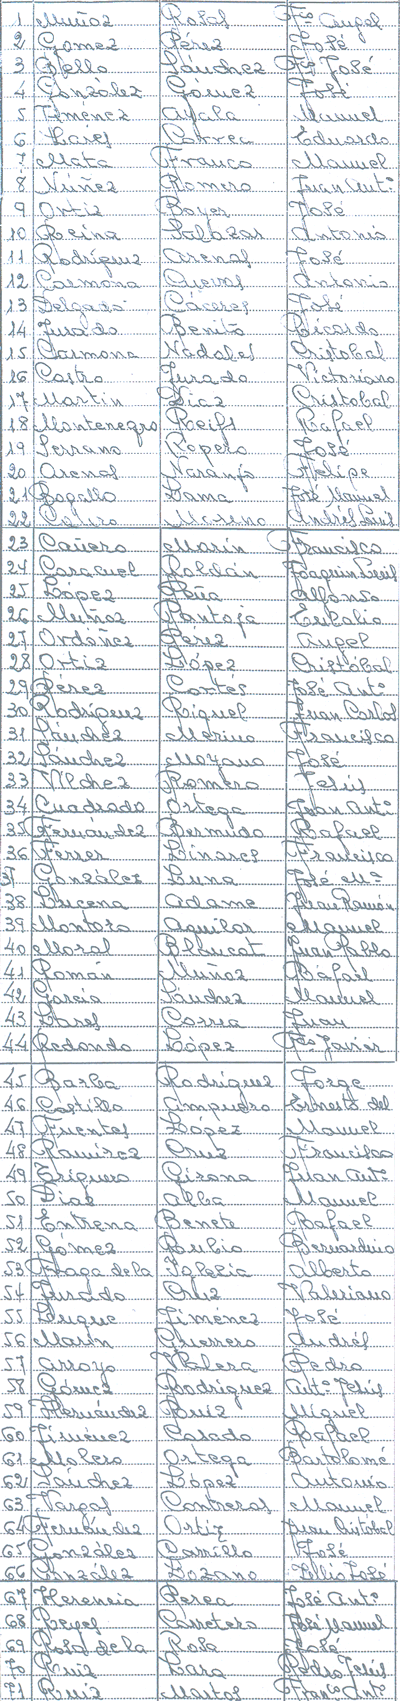 1 Muñoz Rosas Fco Angel
2 Gomez Pérez José
3 Bello Sánchez Fco José
4 González Gómez José
5 Jiménez Ayala Manuel
6 Lares Correa Eduardo
7 Mata Franco Manuel
8 Núñez Romero Juan Antº
9 Ortiz Boyer José
10 Reina Salazar Antonio
11 Rodríguez Arenas José
12 Carmona Cuevas Antonio
13 Delgado Cáceres José
14 Jurado Benito Ricardo
15 Carmona Nadales Cristobal
16 Castro Jurado Victoriano
17 Martin Diaz Cristobal
18 Montenegro Reifs Rafael
19 Serrano Ropero José
20 Arenas Naranjo Felipe
21 Bogallo Lama José Manuel
22 Moreno Andrés Luis
23 Cañero Marín Francisco
24 Caracuel Roldán Joaquin Luis
25 López Peña Alfonso
26 Muñoz Pantoja Eulalio
27 Ordóñez Pérez Angel
28 Ortiz López Cristóbal
29 Pérez Cortés José Antº
30 Rodríguez Riquel Juan Carlos
31 Sánchez Merino Francisco
32 Sánchez Moyano José
33 Vílchez Romero Jesús
34 Cuadrado Ortega Juan Antº
35 Fernández Bermudo Rafael
36 Ferrer Linares Francisco
37 González Luna José Mª
38 Lucena Adame Juan Ramón
39 Montoro Aguilar Manuel
40 Moral Blancat Juan Pablo
41 Román Muñoz Rafael
42 García Sánchez Manuel
43 Lares Correa Juan
44 Redondo López Fco Javier
45 Barba Rodríguez Jorge
46 Castillo Ampuero Ernesto del
47 Fuentes López Manuel
48 Ramírez Cruz Francisco
49 Triguero Girona Juan Antº
50 Diaz Alba Manuel
51 Entrena Benete Rafael
52 Gómez Rubio Bernardino
53 Fraga de la Iglesia Alberto
54 Jurado Cruz Valeriano
55 Luque Jiménez José
56 Marín Guerrero Andrés
57 Arroyo Valera Pedro
58 Gómez Rodríguez Antº Jesús
59 Hernández Ruiz Miguel
60 Jiménez Casado Rafael
61 Molero Ortega Bartolomé
62 Sánchez López Antonio
63 Vargas Contreras Manuel
64 Fernández Ortiz Juan Cristóbal
65 González Carrillo José
66 González Lozano Julio José
67 Herencia Perea José Antº
68 Reyes Carretero José Manuel
69 Rosa de la Rosa José
70 Ruiz Lara Pedro Jesús
71 Ruiz Martos Franco Antº